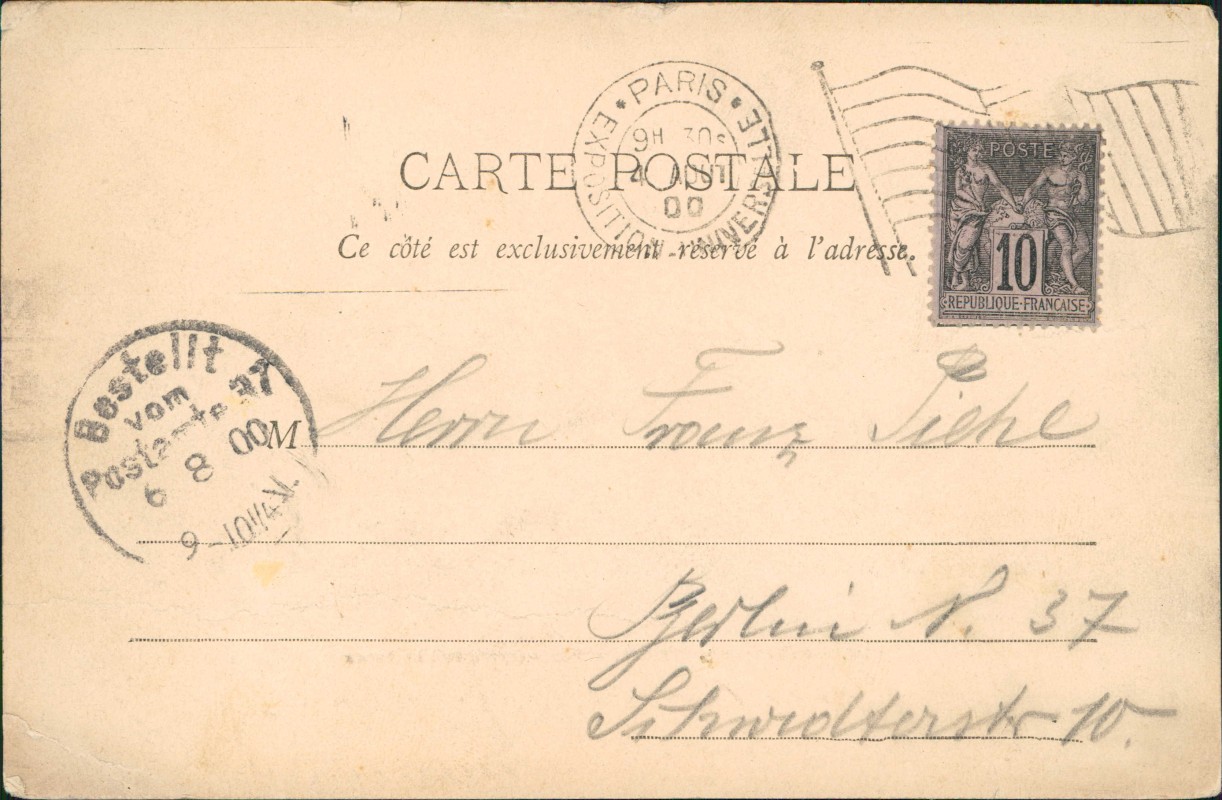 PARIS
EXPOSITION UNIVERSELLE
9H 30S
4 AOUT
00
CARTE POSTALE
Ce côté est exclusivement réservé à l'adresse.
POSTE
10
REPUBLIQUE-FRANCAISE
Bestellt
vom
Postamte 37
6 8 00
9-10¼V.
M Herrn Franz Piehl
Berlin N. 37
Schwedterstr 10.